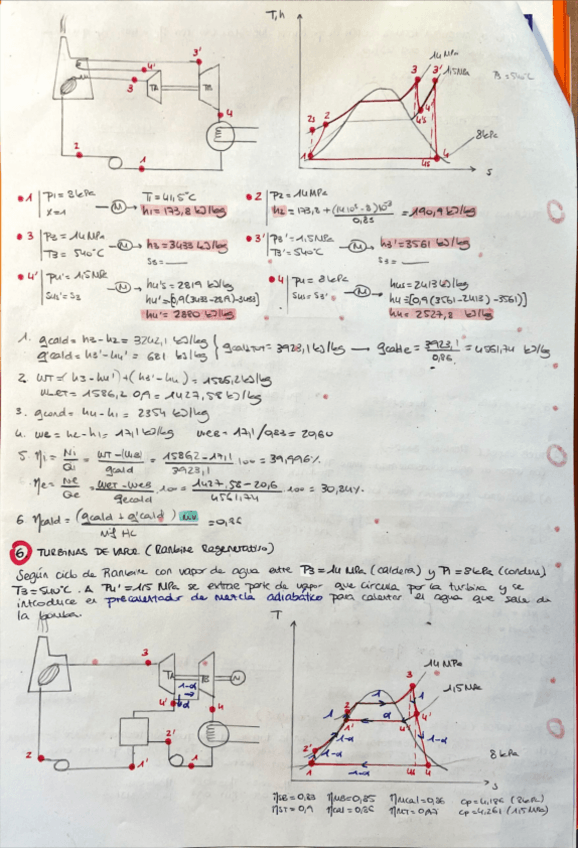 T,h
14 MPa
1,5 MPa
T3 = 540ºC
8 kPa
s
3'
4'
3
TA
TB
4
2
1
3 3'
4
4's
2s 2
1
4s 4
•1 P1 = 8 kPa T1 = 41,5ºC
x=1 → (M) → h1 = 173,8 kJ/kg
•2 P2 = 14 MPa
h2 = 173,8 + (14·10³ - 8)10⁻³ / 0,83 = 190,9 kJ/kg
•3 P3 = 14 MPa
T3 = 540ºC → (M) → h3 = 3433 kJ/kg
s3 = __
•3' P3' = 1,5 MPa
T3' = 540ºC → (M) → h3' = 3561 kJ/kg
s3 = __
•4' P4' = 1,5 MPa
s4s' = s3 → (M) → h4's = 2819 kJ/kg
h4' = [0,9(3433-2819)-3433]
h4' = 2880 kJ/kg
•4 P4 = 8 kPa
s4s = s3' → (M) → h4s = 2413 kJ/kg
h4 = [0,9(3561-2413)-3561]
h4 = 2527,8 kJ/kg
1. qcald = h3-h2 = 3242,1 kJ/kg
q'cald = h3'-h4' = 681 kJ/kg } qcaldTOT = 3923,1 kJ/kg → qcalde = 3923,1 / 0,86 = 4561,74 kJ/kg
2. WT = (h3-h4') + (h3'-h4) = 1586,2 kJ/kg
WeT = 1586,2 · 0,9 = 1427,58 kJ/kg
3. qcond = h4-h1 = 2354 kJ/kg
4. WB = h2-h1 = 17,1 kJ/kg WeB = 17,1/0,83 = 20,60
5. ηi = Ni / Qi = WT-(WB) / qcald = 1586,2-17,1 / 3923,1 · 100 = 39,996%
ηe = Ne / Qe = WeT-WeB / qecald · 100 = 1427,58-20,6 / 4561,74 · 100 = 30,84%
6 ηcald = (qcald + q'cald) ṁv / ṁf Hc = 0,86
6 TURBINAS DE VAPOR (Rankine Regenerativo)
Según ciclo de Rankine con vapor de agua entre P3 = 14 MPa (caldera) y P1 = 8 kPa (conden)
T3 = 540ºC. A P4' = 1,5 MPa se extrae parte de vapor que circula por la turbina y se
introduce en precalentador de mezcla adiabático para calentar el agua que sale de
la bomba.
3
TA
TB
1-α
α
4'
4
2'
2
1'
1
T
14 MPa
1,5 MPa
8 kPa
s
3
1
α
1-α
2
4'
2'
1
4s 4
ηSB = 0,83 ηMB = 0,85 ηMcal = 0,86 cp = 4,186 (8 kPa)
ηST = 0,9 ηcal = 0,86 ηMT = 0,97 cp = 4,261 (1,5 MPa)